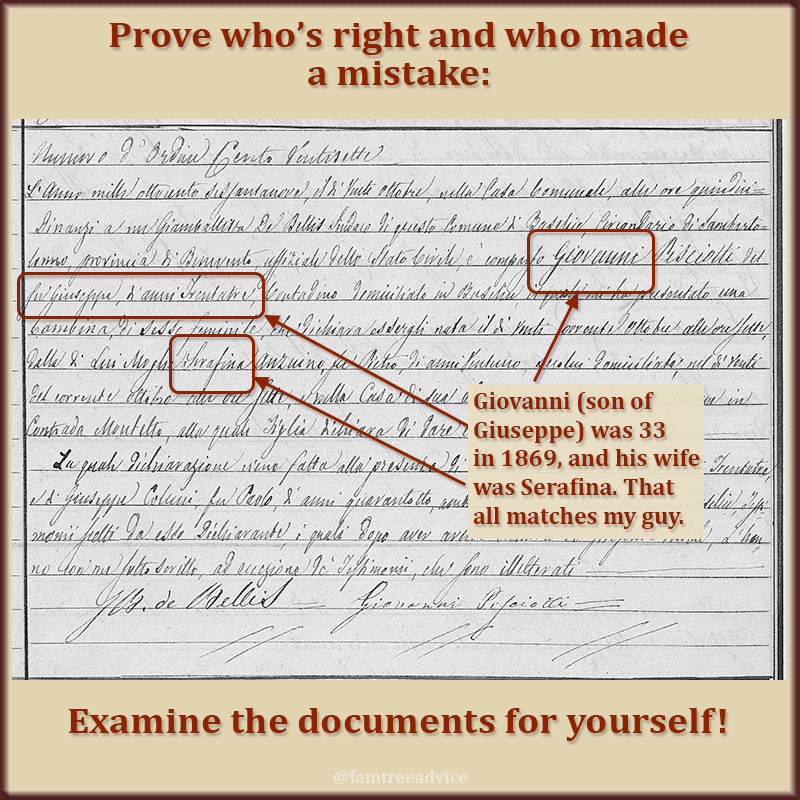 Prove who's right and who made
a mistake:
Numero d'Ordine Cento Ventisette
L'Anno mille ottocento sessantanove, il dì Venti Ottobre, nella Casa Comunale, alle ore quindici=
Dinanzi a me Giambattista De Bellis Sindaco di questo Comune di Baselice, Circondario di Sanbarto=
lomeo, provincia di Benevento uffiziale dello Stato Civile, è comparso Giovanni Pisciotti del
fu Giuseppe, d'anni Trentatre, Contadino domiciliato in Baselice presentato una
Bambina, di sesso feminile che dichiara essergli nata il dì Venti corrente Ottobre alle ore sette,
dalla di Lui Moglie Serafina fu Pietro, di anni Ventuno, domiciliata, nel dì Venti
del corrente ottobre alle ore sette, nella Casa di sua in
Contrada Montetto, alla quale Figlia dichiara di dare
La quale dichiarazione viene fatta alla presenza di Trentatre,
e di Giuseppe fu Paolo, d'anni quarantotto,
monii scelti da esso Dichiarante i quali dopo aver
no con me sottoscritto, ad eccezione de' Testimonii, che sono illitterati
GB. de Bellis Giovanni Pisciotti
Giovanni (son of
Giuseppe) was 33
in 1869, and his wife
was Serafina. That
all matches my guy.
Examine the documents for yourself!
@famtreeadvice